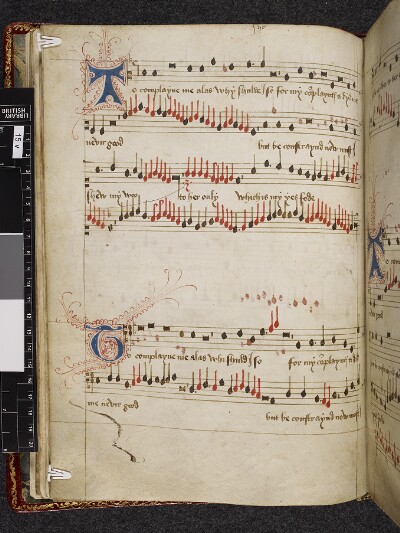 To complayne me alas why shulde I so for my complaynt it dyd
nevir good but be constraynd now must I
shew my woo to her only which is my yes fode
To complayne me alas why shuld I so for my complaynt it did
me nevir good but be constraynd now must I
15 v